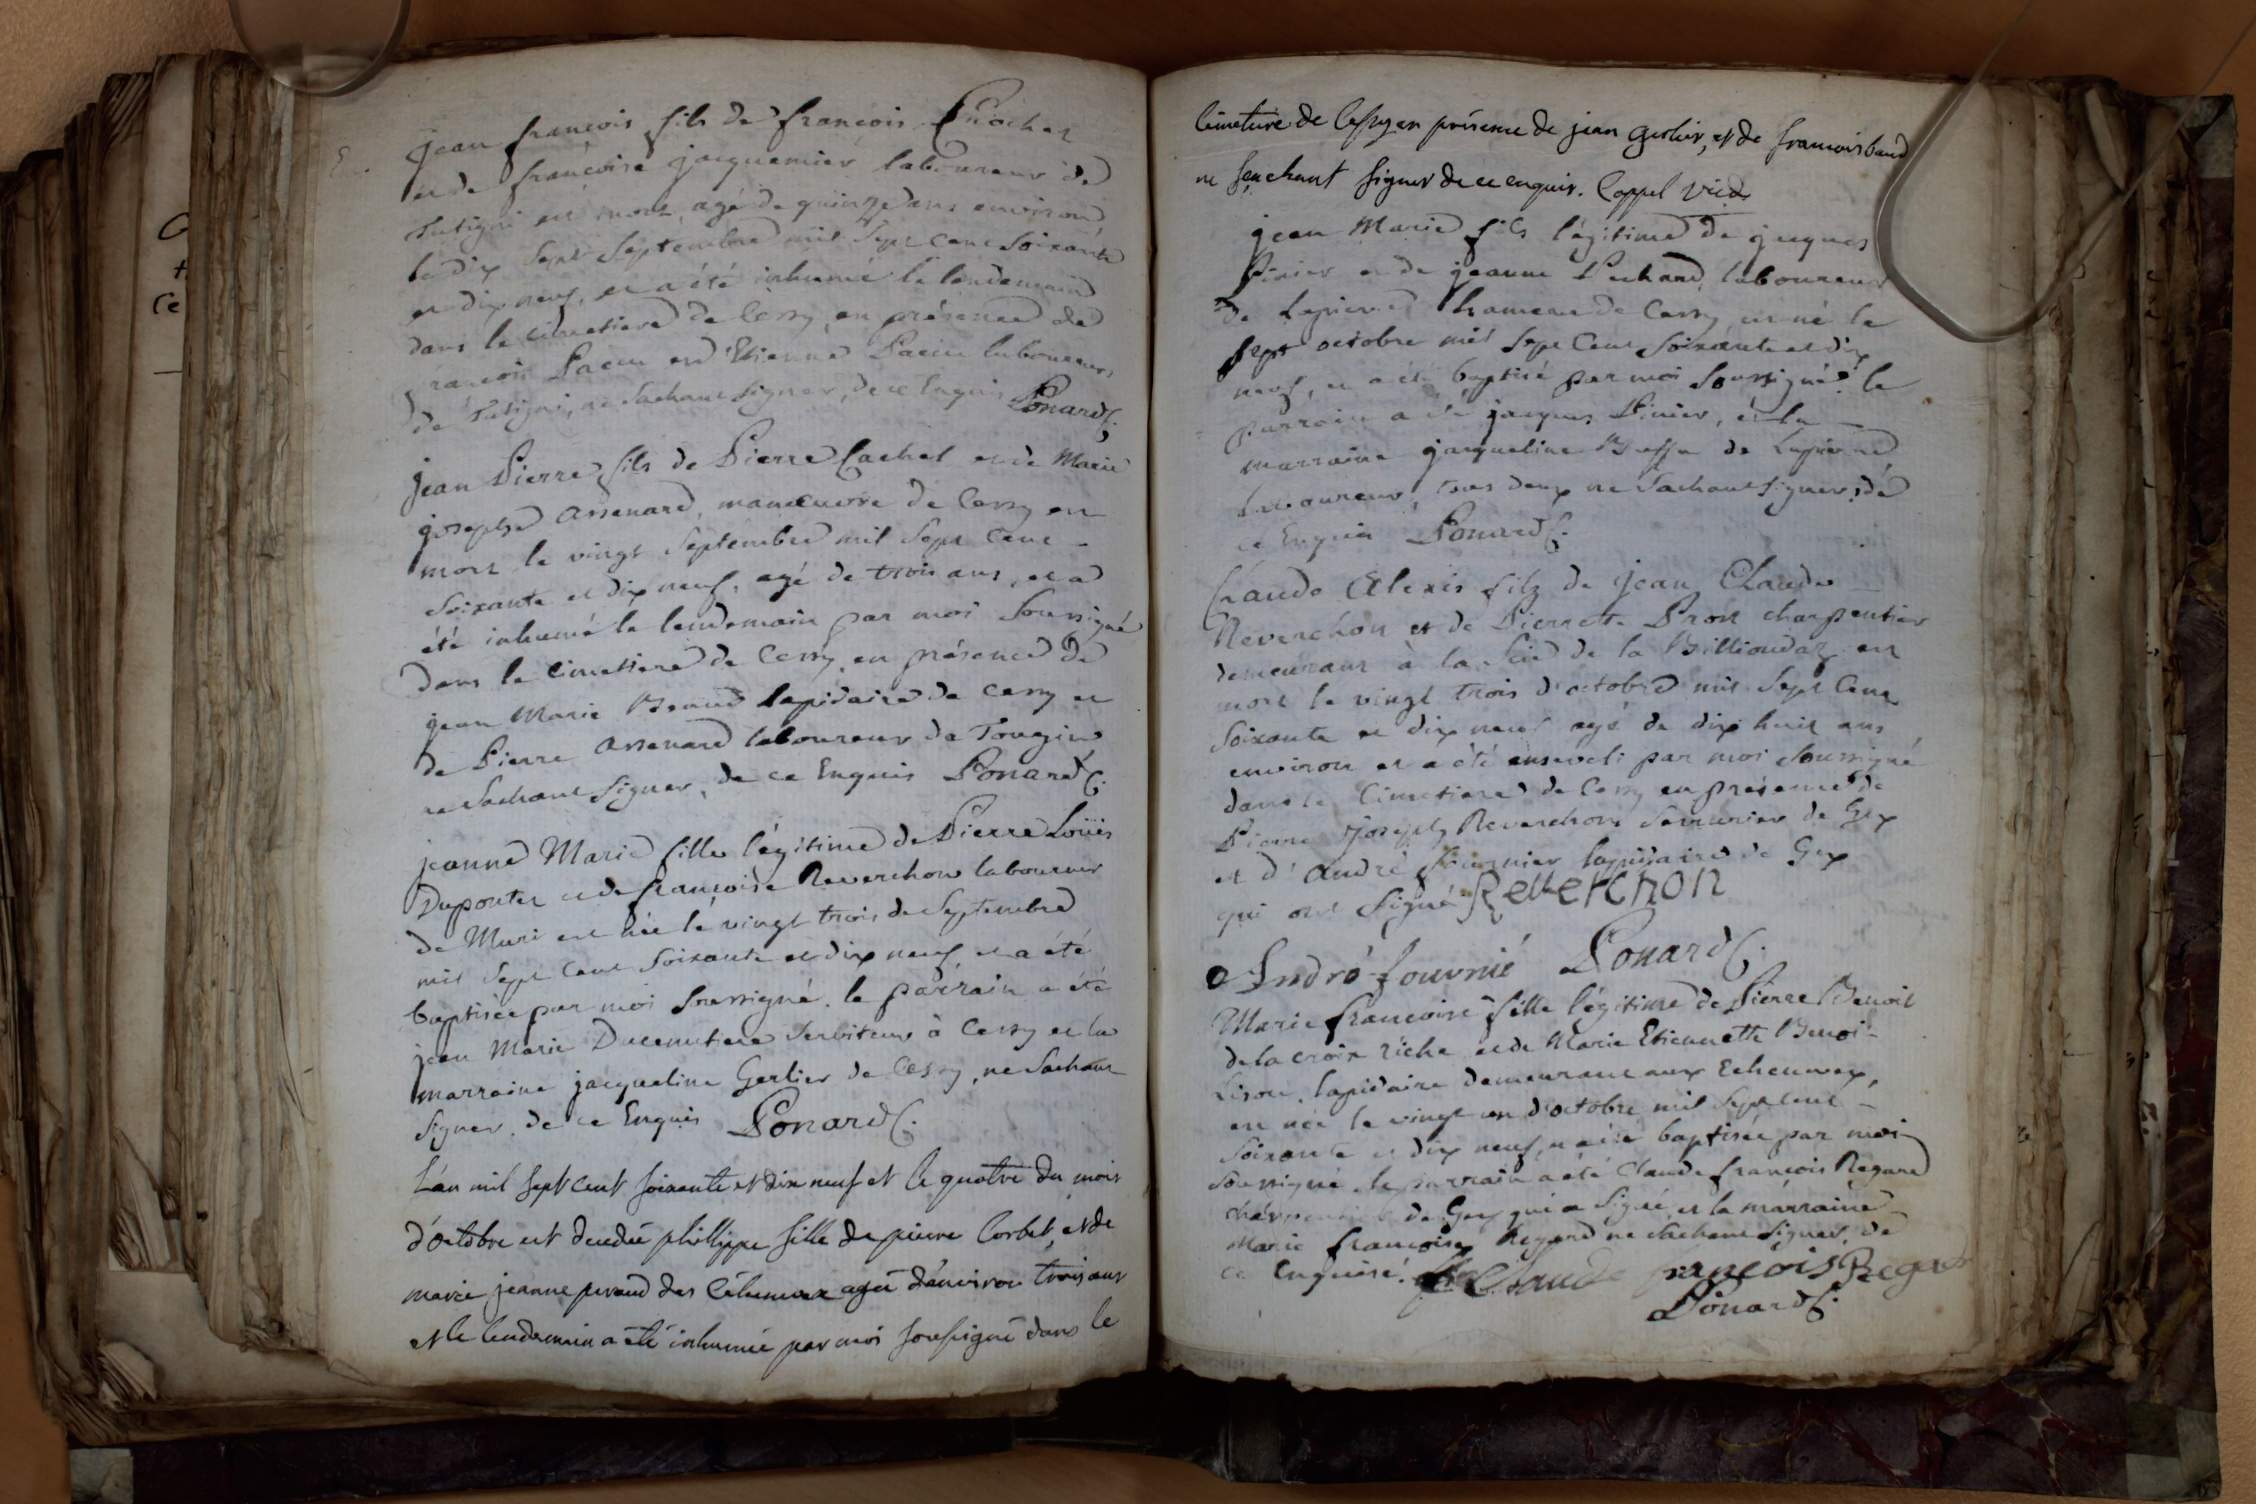 jean françois fils de françois
et de françoise jacquemier laboureur de
Tutigni est mort, agé de quinze ans environ
le dix sept Septembre mil Sept cent Soixante
et dix neuf, et a été inhumé le lendemain
dans le cimetiere de Cessy, en présence de
françois et Etienne laboureurs
de Tutigni, ne Sachant signer, de ce Enquis Ponard C.
jean Pierre fils de Pierre Cachet et de Marie
josephe Assenard, manœuvre de Cessy est
mort le vingt Septembre mil Sept Cent
Soixante et dix neuf, agé de trois ans, et a
été inhumé le lendemain par moi Soussigné
dans le Cimetiere de Cessy, en présence de
jean Marie lapidaire de Cessy et
de Pierre Assenard laboureur de Tougin
ne Sachant Signer, de ce Enquis Ponard C.
jeanne Marie fille légitime de Pierre Loüis
Duponter et de françoise Reverchon laboureur
de Muri est née le vingt trois de Septembre
mil Sept Cent Soixante et dix neuf et a été
baptisée par moi Soussigné. le parrain a été
jean Marie Ducemetiere Serviteur à Cessy et la
marraine jacqueline Gerlier de Cessy, ne Sachant
Signer, de ce Enquis Ponard C.
L'an mil sept cent soixante et dix neuf et le quatre du mois
d'octobre est décédée phillippe fille de pierre Corbet, et de
marie jeanne peraud des agée d'environ trois ans
et le lendemain a été inhumée par moi soussigné dans le
cimetiere de Cessy en présence de jean Gerlier, et de francois baud
ne sçachant signer de ce enquis. Coppel vic.
jean Marie fils légitime de jacques
Pinier et de jeanne laboureur
de Lapierre hameau de Cessy, est né le
sept octobre mil Sept Cent Soixante et dix
neuf, et a été baptisé par moi Soussigné. le
parrain a été jacques Pinier, et la
marraine jacqueline de Lapierre
Laboureur, tous deux ne Sachant Signer, de
ce Enquis Ponard C.
Claude Alexis fils de jean Claude
Reverchon et de Pierrette Prost charpentier
demeurant à la Scie de la Billioudaz est
mort le vingt trois d'octobre mil Sept Cent
Soixante et dix neuf agé de dix huit ans
environ et a été enseveli par moi Soussigné
dans le Cimetiere de Cessy en présence de
Pierre Joseph Reverchon Serrurier de Gex
et d'André fournier lapidaire de Gex
qui ont Signé Reverchon
André fournié Ponard C.
Marie françoise fille légitime de Pierre Benoit
de la croix riche et de Marie Etiennette Benoi-
Lison, lapidaire demeurant aux Echenevex,
est née le vingt un d'octobre mil Sept Cent
Soixante et dix neuf, et a été baptisée par moi
Soussigné, le parrain a été Claude françois Regard
de Gex qui a Signé et la marraine
Marie françoise Regard ne Sachant Signer, de
ce Enquise. Claude françois Regard
Ponard C.